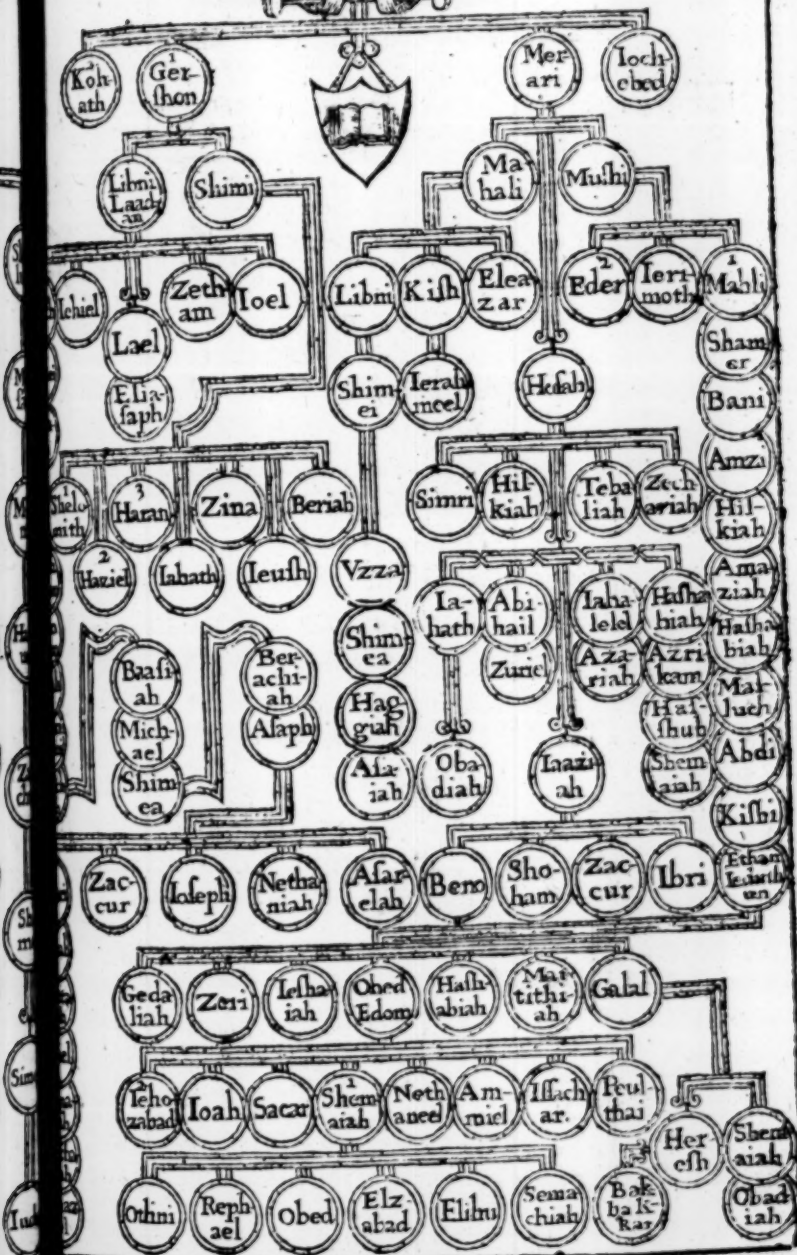 Koh-
ath
1
Ger-
shon
Mer-
ari
Ioch-
ebed
Libni
Laad-
an
Shimi
Ma
hali
Mushi
Ichiel
Zeth
am
Ioel
Libni
Kish
Elea
zar
2
Eder
Ieri
moth
1
Mahli
Lael
Elia-
saph
Shim-
ei
Ierah
meel
Hosah
Sham
er
Bani
Amzi
1
Shelo-
mith
3
Haran
Zina
Beriah
Simri
Hil-
kiah
Teba
liah
Zech
ariah
Hil-
kiah
2
Haziel
Iahath
Ieush
Vzza
Ama
ziah
Ia-
hath
Abi-
hail
Iaha-
lelel
Hasha
biah
Hasha
biah
Baasi-
ah
Ber-
achi-
ah
Shim-
ea
Zuriel
Aza-
riah
Azri
kam
Mal-
luch
Mich-
ael
Asaph
Hag
giah
Has-
shub
Abdi
Shim-
ea
Asa-
iah
Oba
diah
Iaazi
ah
Shem-
aiah
Kishi
Zac-
cur
Ioseph
Netha
niah
Asar-
elah
Beno
Sho-
ham
Zac-
cur
Ibri
Ethan
Ieduth
un
Geda
liah
Zeri
Iesha-
iah
Obed
Edom
Hash-
abiah
Mat-
tithi-
ah
Galal
2
Ieho-
zabad
Ioah
Sacar
1
Shem-
aiah
Neth
aneel
Am-
miel
Issach
ar.
Peul-
thai
Her-
esh
Shem
aiah
Othni
Reph-
ael
Obed
Elz-
abad
Elihu
Sema
chiah
Bak
bak-
kar
Obad
iah